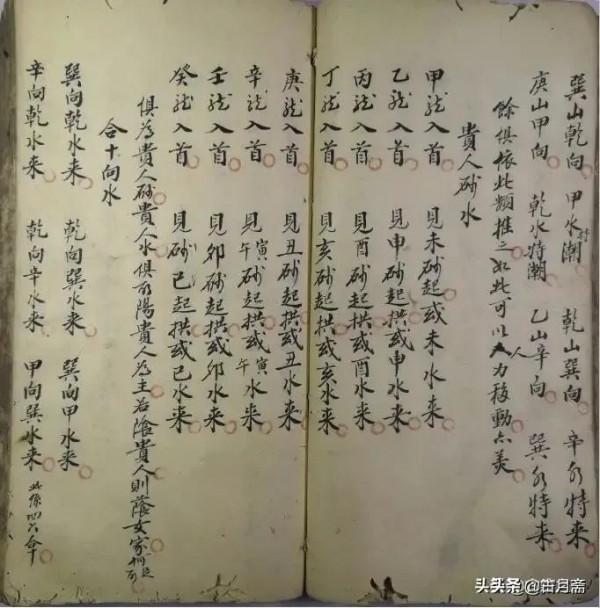 巽山乾向 甲水特潮 乾山巽向 辛水特来
庚山甲向 乾水特潮 乙山辛向 巽水特来
餘俱依此類推之如此可以人力移動亦美
貴人砂水
甲龙入首 見未砂起拱或未水来
乙龙入首 見申砂起拱或申水来
丙龙入首 見酉砂起拱或酉水来
丁龙入首 見亥砂起拱或亥水来
庚龙入首 見丑砂起拱或丑水来
辛龙入首 見寅午砂起拱或寅午水来
壬龙入首 見卯砂起拱或卯水来
癸龙入首 見砂巳起拱或巳水来
俱為貴人砂貴人水俱前陽貴人為主若陰貴人則蔭女家
合十向水
巽向乾水来 乾向巽水来 巽向甲水来
辛向乾水来 乾向辛水来 甲向巽水来 此係四六合十
头条@云月斋